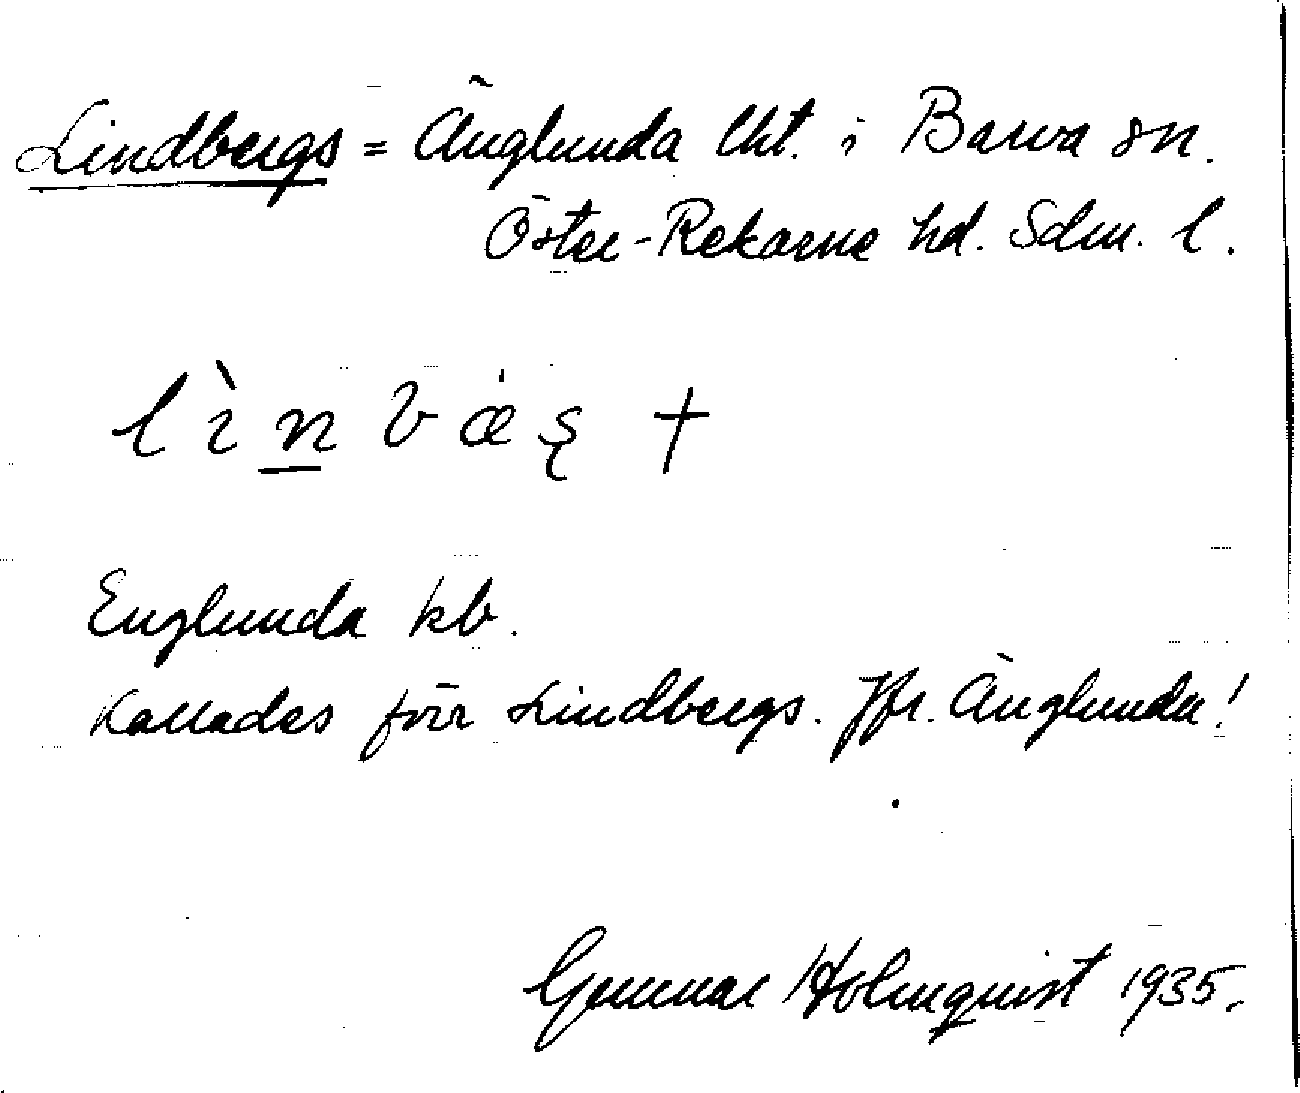 Lindbergs = Änglunda lht. i Barva sn.
Öster-Rekarne hd. Sdm. l.
lìnbæ̇ș +
Englunda kb.
Kallades förr Lindbergs. Jfr. Änglunda!
Gunnar Holmquist 1935.